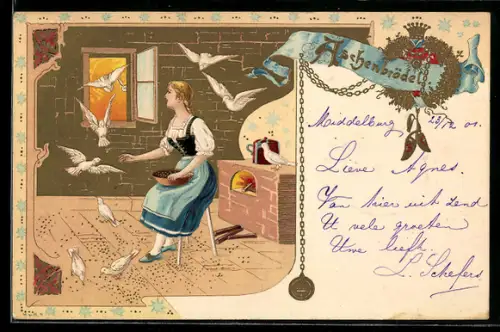 Aschenbrödel
Middelburg 23/12 01.
Lieve Agnes.
Van hier uit zend
U vele groeten
Uwe liefh.
L. Schefers